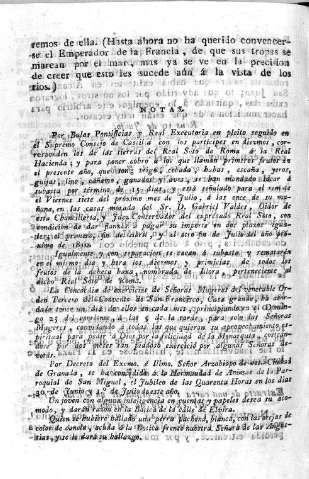 remos de ella. (Hasta ahora no ha querido convencer-
se el Emperador de la Francia, de que sus tropas se
marean por el mar, mas ya se ve en la precision
de creer que esto les sucede aún á la vista de los
rios.)
NOTAS.
Por Bulas Pontificias y Real Executoria en pleito seguido en
el Supremo Consejo de Castilla con los partícipes en diezmos, cor-
responden los de las tierras del Real Soto de Roma á la Real
Hacienda; y para poner cobro á los que llaman primeros frutos en
el presente año, que son trigo, cebada, habas, escaña, yeros,
guijas, lino, cáñamo, ganados y aves, se han mandado sacar á
subasta por término de 15 dias, y está señalado para el remate
el Viernes siete del próximo mes de Julio, á las once de su ma-
ñana, en las casas morada del Sr. D. Gabriel Valdes, Oidor de
esta Chancillería, y Juez Conservador del expresado Real Soto, con
condicion de dar fianza á pagar su importe en dos plazos igua-
les, el primero, fin de , y el otro fin de Julio del año pró-
ximo de 1810.
Igualmente y con separacion se sacan á subasta y rematarán
en el mismo dia y hora los diezmos y primicias de todos los
frutos de la dehesa baxa, nombrada de Illora, perteneciente al
dicho Real Soto de Roma.
La Concordia de exercicios de Señoras Mugeres del venerable Or-
den Tercero del Convento de San Francisco, Casa grande, ha acor-
dado tener un dia de ellos sacando á principiando y el Domin-
go 25 del corriente, á las 5 de la tarde, para solo las Señoras
Mugeres, convidando á todas las que quieran su aprovechamiento es-
piritual para pedir á Dios por la felicidad de la Monarquía,
por dos veces tan piadoso exercicio por algunas Señoras de-
votas.
Por Decreto del Excmo. é Illmo. Señor Arzobispo de esta Ciudad
de Granada, se ha concedido á la Hermandad de Animas de la Par-
roquial de San Miguel, el Jubileo de las Quarenta Horas en los dias
30 de Junio y 1.º de Julio de este año.
Un joven con alguna inteligencia en cuentas y papeles desea su aco-
modo, y darán razon en la Botica de la calle de Elvira.
Quien se hubiere hallado una perra pachona, blanca, con las orejas de
color de canela, acuda á la Botica frente nuestra Señora de las Angus-
tias, y se le dará su hallazgo.